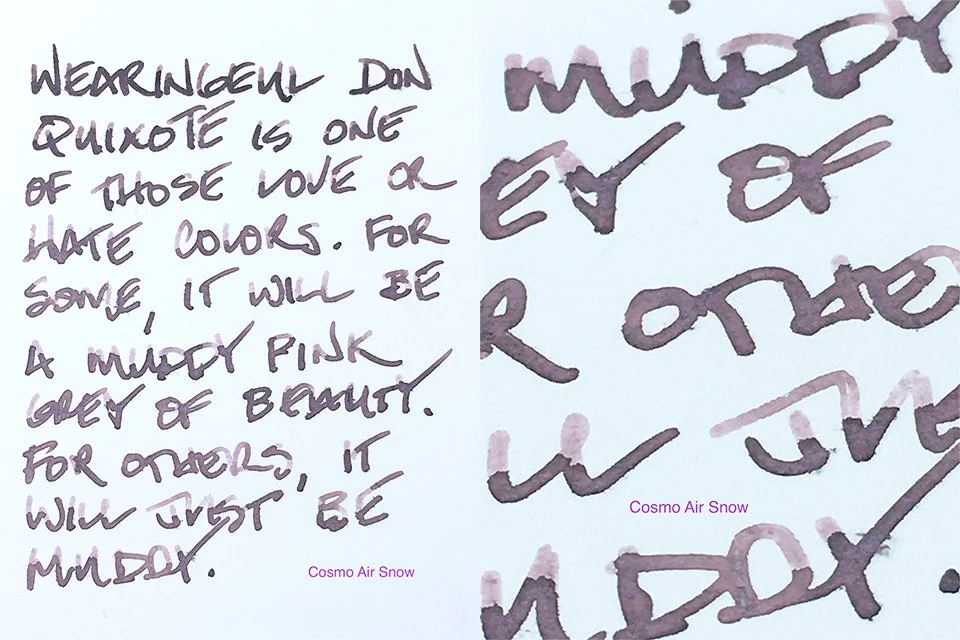 WEARINGEUL DON
QUIXOTE IS ONE
OF THOSE LOVE OR
HATE COLORS. FOR
SOME, IT WILL BE
A MUDDY PINK
GREY OF BEAUTY.
FOR OTHERS, IT
WILL JUST BE
MUDDY.
Cosmo Air Snow
MUDDY
EY OF
R OTHE
LL JUS
Cosmo Air Snow
UDDY.